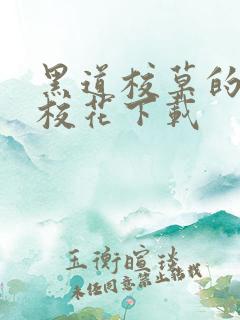 黑道校草的
校花下载
玉衡暄琰
未经同意禁止转载